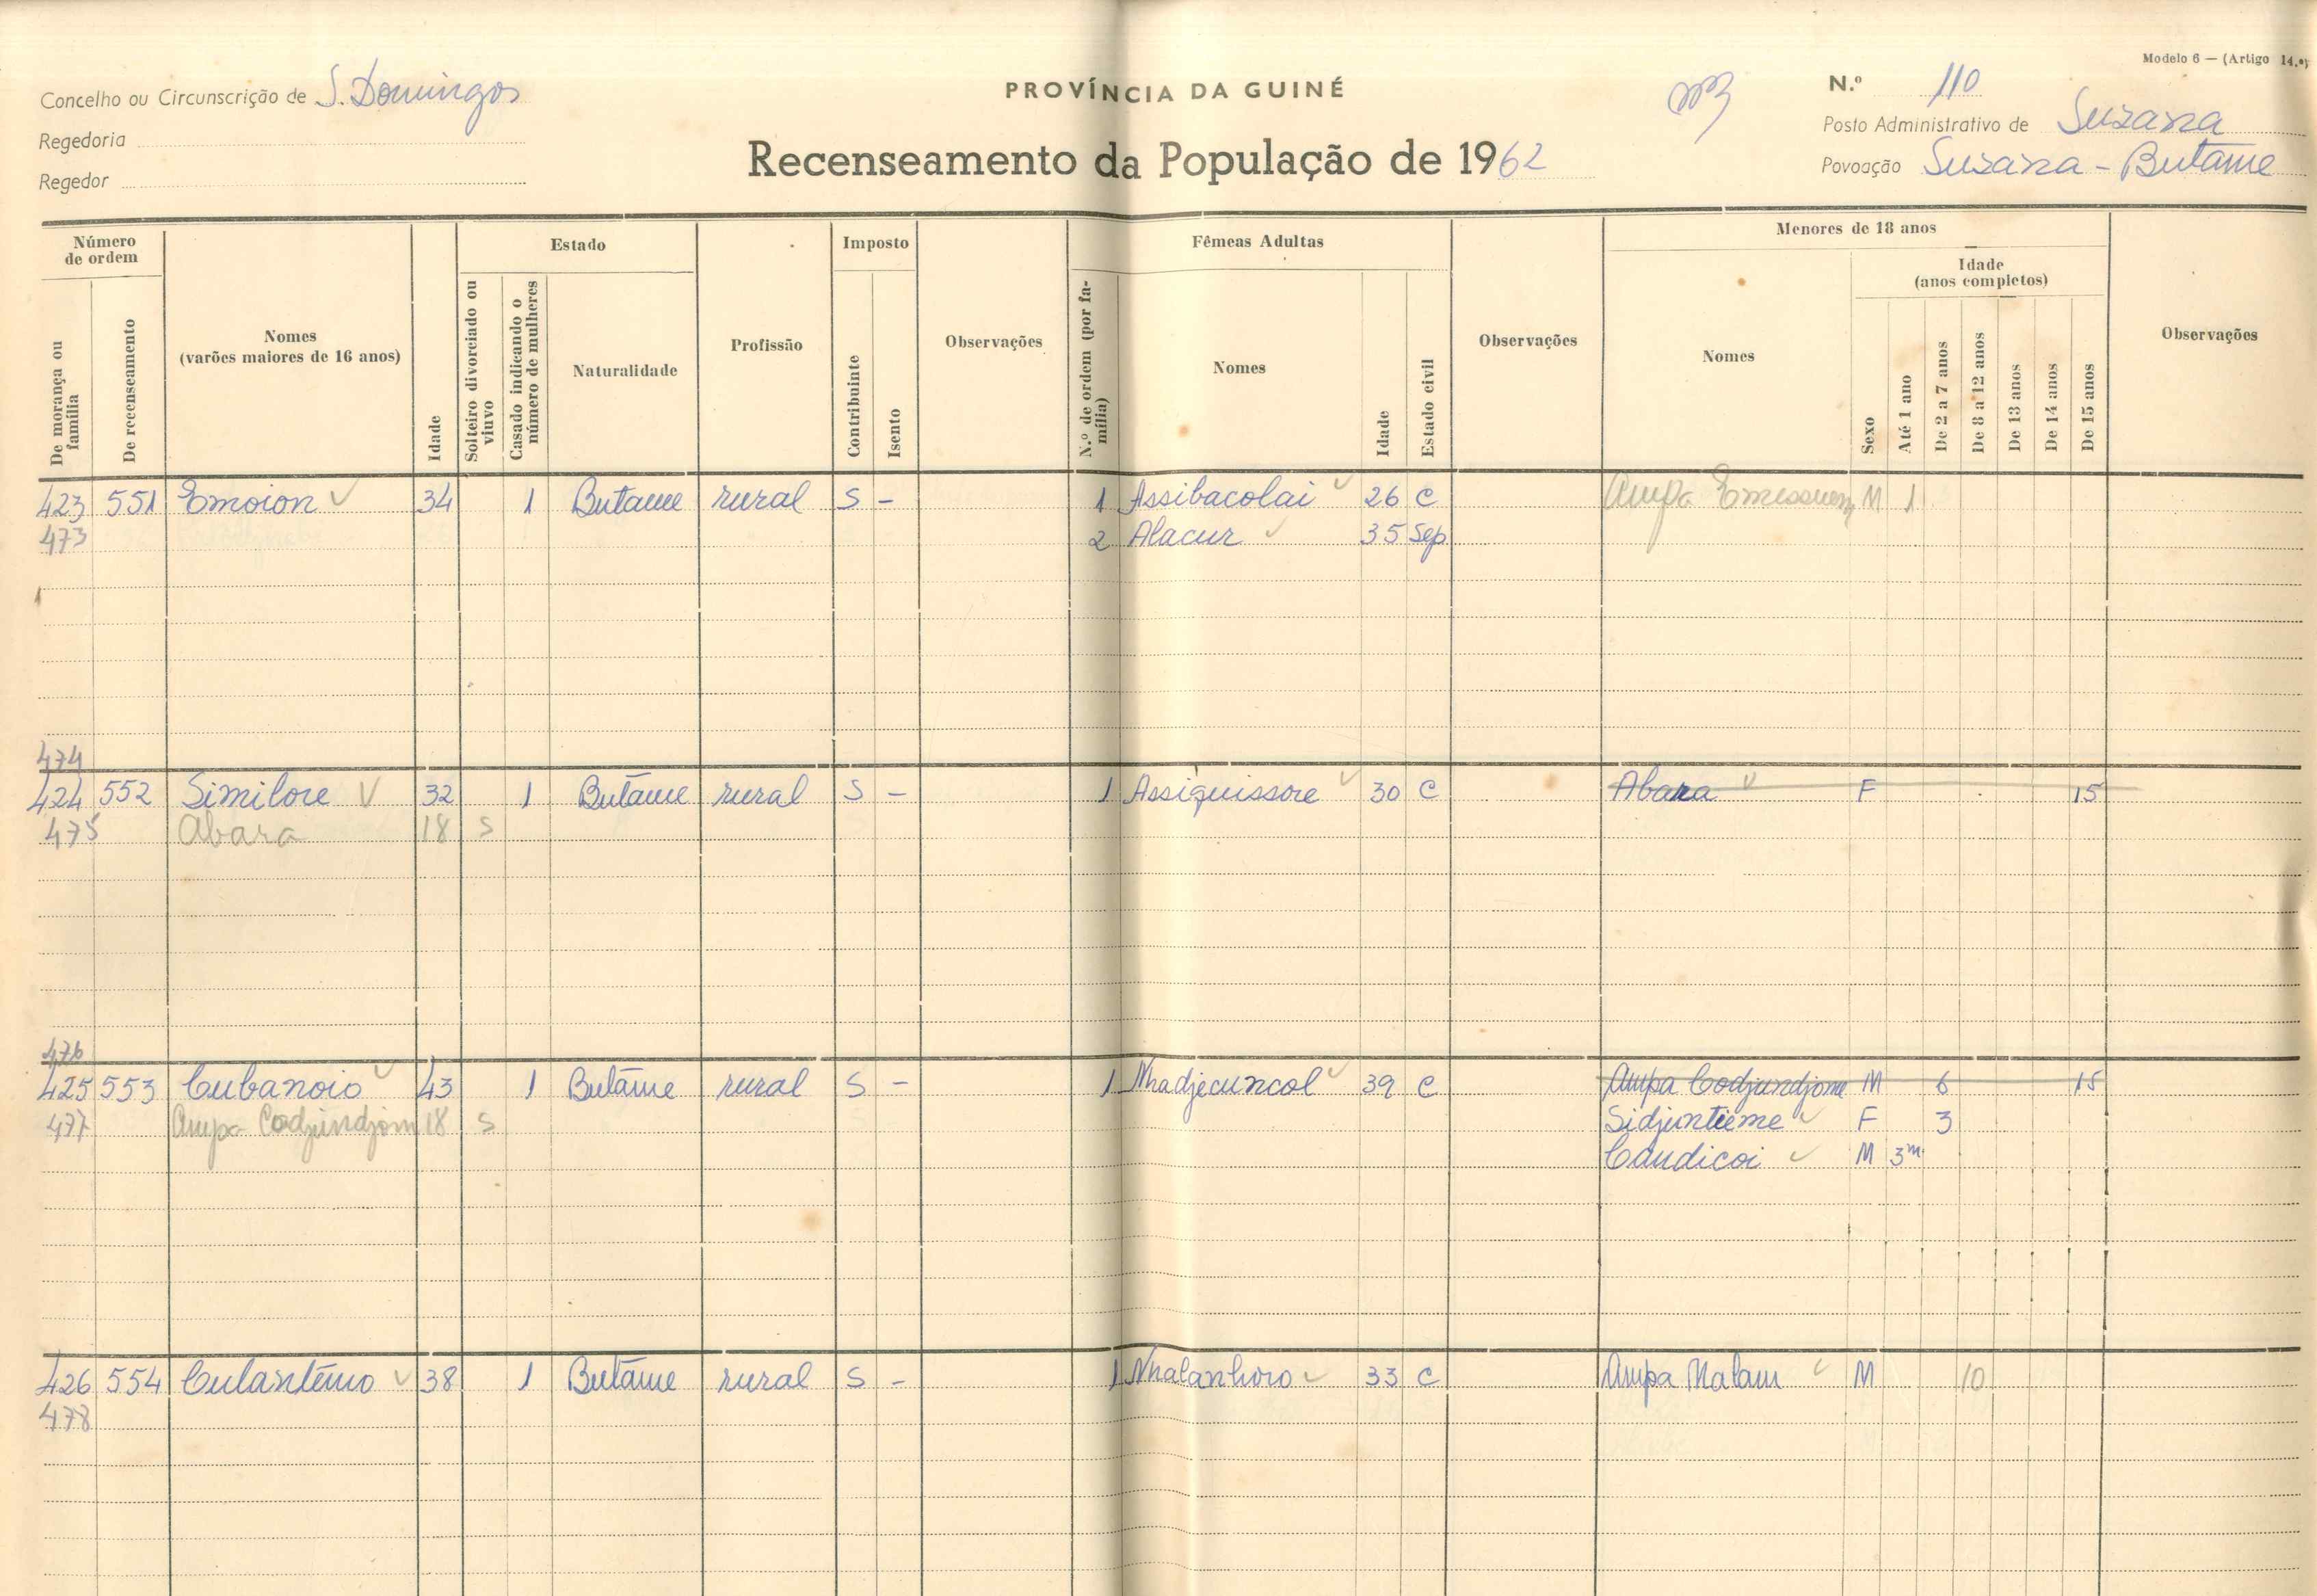 Modelo 6 — (Artigo 14.º)
Concelho ou Circunscrição de S. Domingos
PROVÍNCIA DA GUINÉ
N.º 110
Regedoria
Posto Administrativo de Suzana
Recenseamento da População de 1962
Regedor
Povoação Suzana - Butame
Número de ordem
De morança ou família
De recenseamento
Nomes (varões maiores de 16 anos)
Idade
Estado
Solteiro divorciado ou viuvo
Casado indicando o número de mulheres
Naturalidade
Profissão
Imposto
Contribuinte
Isento
Observações
Fêmeas Adultas
N.º de ordem (por família)
Nomes
Idade
Estado civil
Observações
Menores de 18 anos
Nomes
Idade (anos completos)
Sexo
Até 1 ano
De 2 a 7 anos
De 8 a 12 anos
De 13 anos
De 14 anos
De 15 anos
Observações
423 551 Emoion 34 1 Butame rural S - 1 Assibacolai 26 C Ampa M 1
473 2 Alacur 35 Sep
474
424 552 Similore 32 1 Butãme rural S - 1 Assiquissore 30 C Abara F 15
475 Abara 18 S
476
425 553 Cubanoio 43 1 Butãme rural S - 1 Nhadjecuncol 39 C Ampa Codjundjome M 6 15
477 Ampa Codjundjom 18 S Sidjuntieme F 3
Caudicoi M 3m
426 554 Culantêmo 38 1 Butãme rural S - 1 Nhalanhoro 33 C Ampa Malam M 10
478